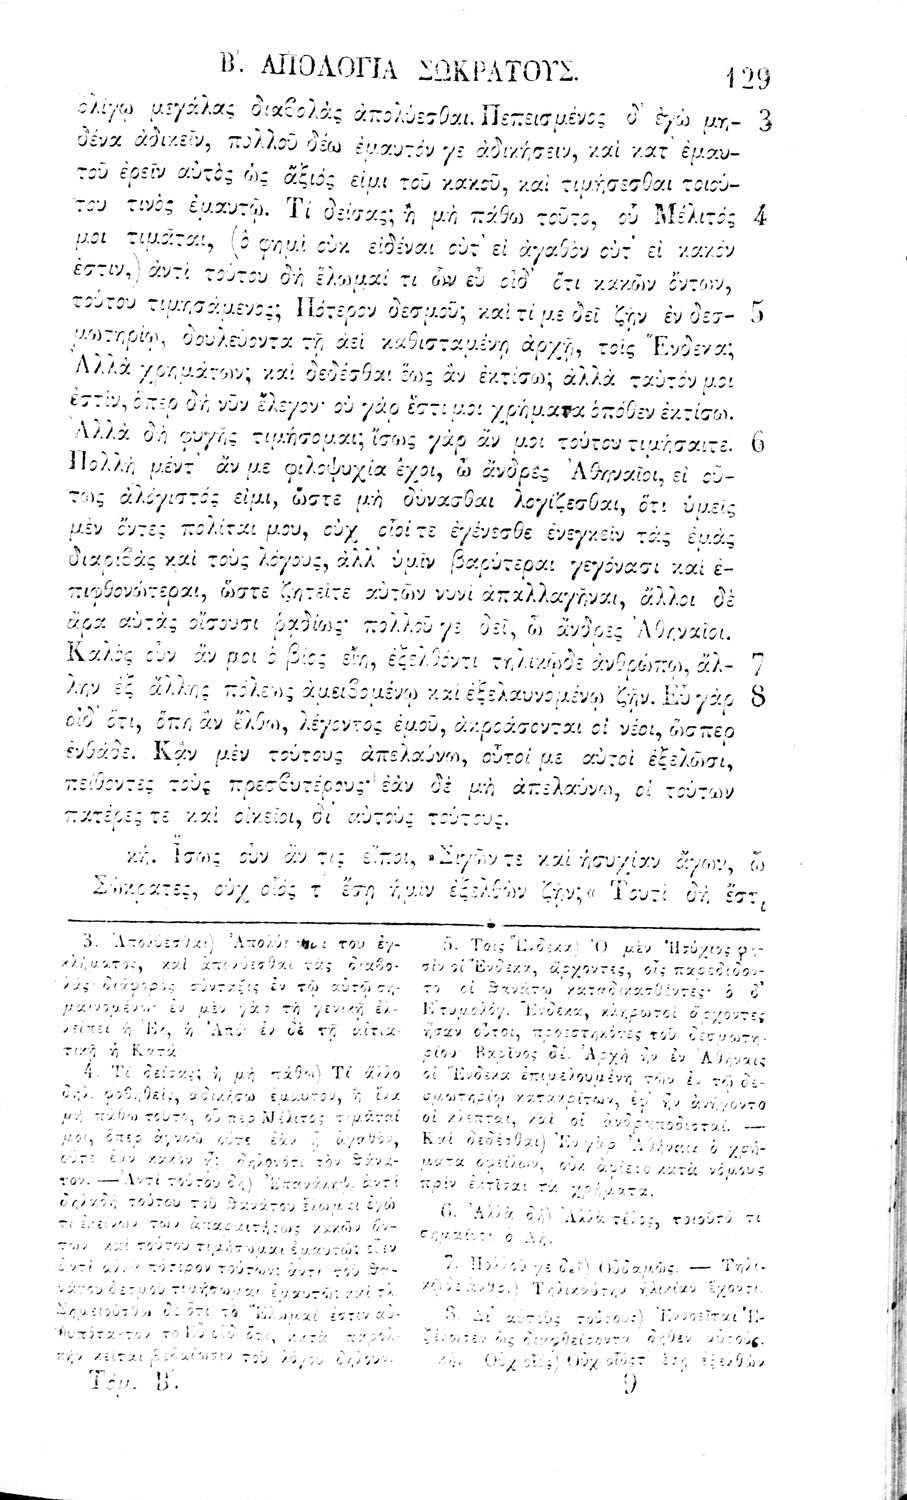 Β΄. ΑΠΟΛΟΓΙΑ ΣΩΚΡΑΤΟΥΣ.
129
ὀλίγῳ μεγάλας διαβολὰς ἀπολύεσθαι. Πεπεισμένος δ' ἐγὼ μη- 3
δένα ἀδικεῖν, πολλοῦ δέω ἐμαυτόν γε ἀδικήσειν, καὶ κατ' ἐμαυ-
τοῦ ἐρεῖν αὐτὸς ὡς ἄξιός εἰμι τοῦ κακοῦ, καὶ τιμήσεσθαι τοιού-
του τινὸς ἐμαυτῷ. Τί δείσας; ἢ μὴ πάθω τοῦτο, οὗ Μέλιτός 4
μοι τιμᾶται, (ὅ φημι οὐκ εἰδέναι οὔτ' εἰ ἀγαθὸν οὔτ' εἰ κακόν
ἐστιν,) ἀντὶ τούτου δὴ ἕλωμαί τι ὧν εὖ οἶδ' ὅτι κακῶν ὄντων,
τούτου τιμησάμενος; Πότερον δεσμοῦ; καὶ τί με δεῖ ζῆν ἐν δεσ- 5
μωτηρίῳ, δουλεύοντα τῇ ἀεὶ καθισταμένῃ ἀρχῇ, τοῖς Ἕνδεκα;
Ἀλλὰ χρημάτων; καὶ δεδέσθαι ἕως ἂν ἐκτίσω; ἀλλὰ ταὐτόν μοι
ἐστίν, ὅπερ δὴ νῦν ἔλεγον· οὐ γὰρ ἔστι μοι χρήματα ὁπόθεν ἐκτίσω.
Ἀλλὰ δὴ φυγῆς τιμήσομαι; ἴσως γὰρ ἄν μοι τούτου τιμήσαιτε. 6
Πολλὴ μέντ' ἄν με φιλοψυχία ἔχοι, ὦ ἄνδρες Ἀθηναῖοι, εἰ οὕ-
τως ἀλόγιστός εἰμι, ὥστε μὴ δύνασθαι λογίζεσθαι, ὅτι ὑμεῖς
μὲν ὄντες πολῖται μου, οὐχ οἷοί τε ἐγένεσθε ἐνεγκεῖν τὰς ἐμὰς
διαριβὰς καὶ τοὺς λόγους, ἀλλ' ὑμῖν βαρύτεραι γεγόνασι καὶ ἐ-
πιφθονώτεραι, ὥστε ζητεῖτε αὐτῶν νυνὶ ἀπαλλαγῆναι, ἄλλοι δὲ
ἄρα αὐτὰς οἴσουσι ῥᾳδίως· πολλοῦ γε δεῖ, ὦ ἄνδρες Ἀθηναῖοι.
Καλὸς οὖν ἄν μοι ὁ βίος εἴη, ἐξελθόντι τηλικῷδε ἀνθρώπῳ, ἄλ- 7
λην ἐξ ἄλλης πόλεως ἀμειβομένῳ καὶ ἐξελαυνομένῳ ζῆν. Εὖ γὰρ 8
οἶδ' ὅτι, ὅπη ἂν ἔλθω, λέγοντος ἐμοῦ, ἀκροάσονται οἱ νέοι, ὥσπερ
ἐνθάδε. Κἂν μὲν τούτους ἀπελαύνω, οὗτοί με αὐτοὶ ἐξελῶσι,
πείθοντες τοὺς πρεσβυτέρους· ἐὰν δὲ μὴ ἀπελαύνω, οἱ τούτων
πατέρες τε καὶ οἰκεῖοι, δι' αὐτοὺς τούτους.
κή. Ἴσως οὖν ἄν τις εἴποι, »Σιγῶν τε καὶ ἡσυχίαν ἄγων, ὦ
Σώκρατες, οὐχ οἷός τ' ἔσῃ ἡμῖν ἐξελθὼν ζῆν;« Τουτὶ δή ἔστι
3. Ἀπολύεσθαι) Ἀπολύεσθαι του ἐγ-
κλήματος, καὶ ἀπολύεσθαι τὰς διαβο-
λὰς· διάφορος σύνταξις ἐν τῷ αὐτῷ ση-
μαινομένῳ· ἐν μὲν γὰρ τῇ γενικῇ ἐλ-
λείπει ἡ Ἐκ, ἢ Ἀπό· ἐν δὲ τῇ αἰτια-
τικῇ ἡ Κατά
4. Τί δείσας; ἢ μὴ πάθω) Τί ἄλλο
δηλ. φοβηθείς, ἀδικήσω ἐμαυτον, ἢ ἵνα
μὴ πάθω τοῦτο, οὗ περ Μέλιτος τιμᾶταί
μοι, ὅπερ ἀγνοῶ οὔτε ἐὰν ᾖ ἀγαθὸν,
οὔτε ἐὰν κακὸν ᾖ; δηλονότι τὸν θάνα-
τον. — Ἀντὶ τούτου δὴ) Ἐπανάληψ. ἀντὶ
δηλαδὴ τούτου τοῦ θανάτου ἕλωμαι ἐγὼ
τι ἐκείνων τῶν ἀπαραιτήτως κακῶν ὄν-
των καὶ τούτου τιμήσωμαι ἐμαυτῷ; εἶεν
ἀντὶ ἄλλα πότερον τούτων; ἀντὶ τοῦ θα-
νάτου δεσμοῦ τιμήσωμαι ἐμαυτῷ; καὶ τλ.
Σημειοῦσθω δὲ ὅτι τὸ Ἕλωμαί ἐστιν αὐ-
θυπότακτον τὸ Εὖ οἶδ' ὅτι, κατὰ παρολ-
κὴν κεῖται βεβαίωσιν τοῦ λόγου δηλοῦν.
5. Τοῖς Ἕνδεκα) Ὁ μὲν Ἡσύχιος φη-
σὶν οἱ Ἕνδεκα, ἄρχοντες, οἷς παρεδίδον-
το οἱ θανάτῳ καταδικασθέντες· ὁ δ'
Ετυμολόγ. Ἕνδεκα, κληρωτοὶ ἄρχοντες
ἦσαν οὗτοι, προεστηκότες τοῦ δεσμωτη-
ρίου· Βαρῖνος δέ. Ἀρχὴ ἦν ἐν Ἀθήναις
οἱ Ἕνδεκα ἐπιμελουμένη τῶν ἐν τῷ δε-
σμωτηρίῳ κατακρίτων, ἐφ' ἣν ἀνήγοντο
οἱ κλεπται, καὶ οἱ ἀνδραποδισταί. —
Καὶ δεδέσθαι) Ἐν γὰρ Ἀθήναις ὁ χρή-
ματα ὀφείλων, οὐκ ἀφίετο κατὰ νόμους
πρὶν ἐκτῖσαι τὰ χρήματα.
6. Ἀλλὰ δὴ) Ἀλλὰ τέλος, τοιοῦτό τι
σημαίνει ὁ Δή.
7. Πολλοῦ γε δεῖ) Οὐδαμῶς. — Τηλι-
κῷδε ἀνθρ.) Τηλικαύτην ἡλικίαν ἔχοντι.
8. Δι' αὐτοὺς τούτους) Ἐννοεῖται Ἐ-
ξελῶσιν ὡς διαφθείροντα δῆθεν αὐτούς.
κή. Οὐχ οἷός) Οὐχ οἷός τ' ἔσῃ ἐξελθὼν
Τόμ. Β΄.
9